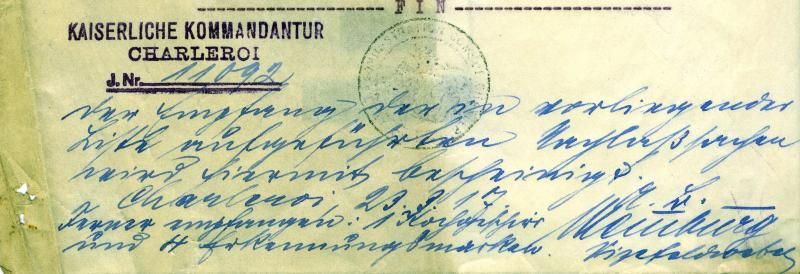 FIN
KAISERLICHE KOMMANDANTUR
CHARLEROI
J. Nr. 11092
Der Empfang der in vorliegender
Liste aufgeführten Nachlaßsachen
wird hiermit bescheinigt.
Charleroi 23.3.17.
Ferner empfangen: 1 Kochgeschirr
und 4 Erkennungsmarken.
Vizefeldwebel